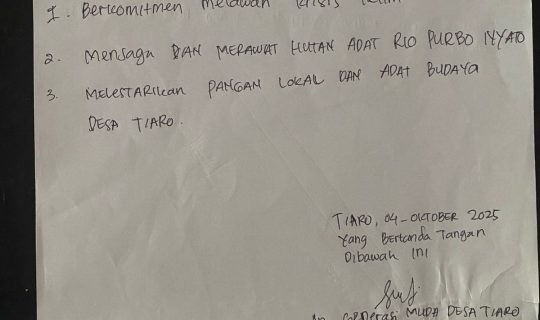 1. Berkomitmen melawan krisis iklim
2. MENJAGA DAN MERAWAT HUTAN ADAT RIO PURBO NYATO
3. MELESTARIKAN PANGAN LOKAL DAN ADAT BUDAYA
DESA TIARO.
TIARO, 04-OKTOBER 2025
Yang Bertanda Tangan
Dibawah Ini
An Generasi MUDA DESA TIARO